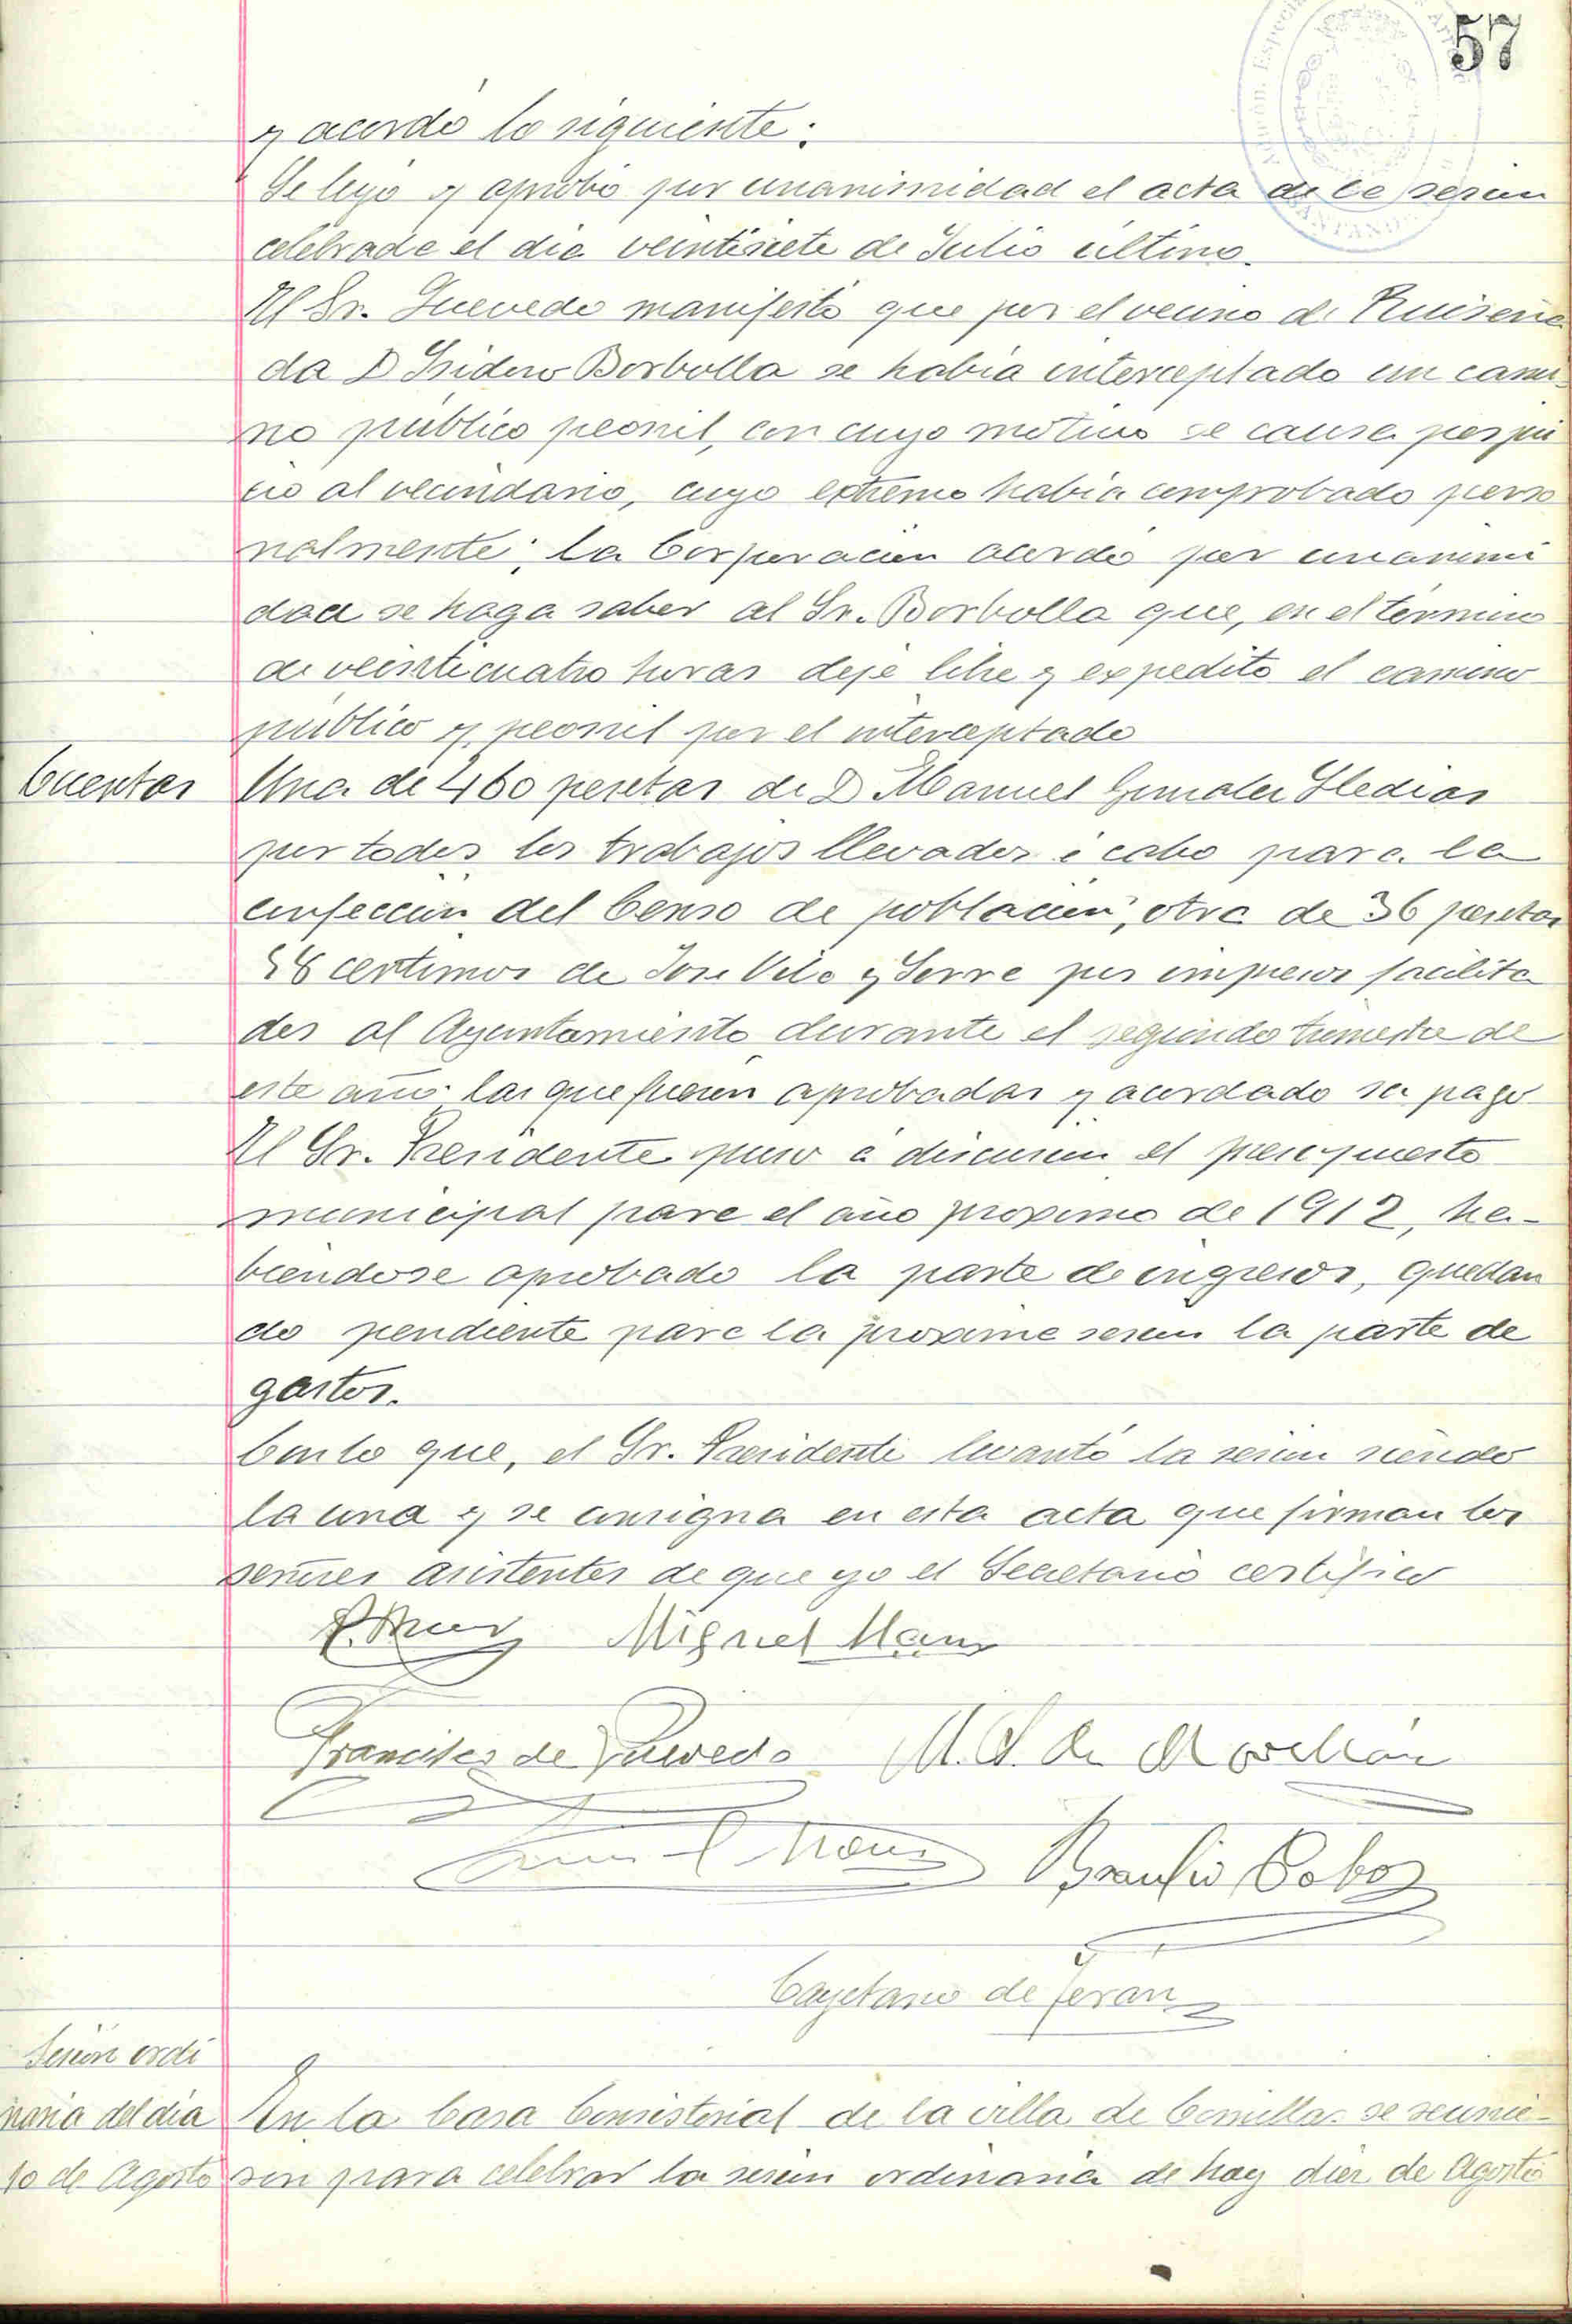 57
y acordó lo siguiente:
Se leyó y aprobó por unanimidad el acta de la sesion
celebrada el dia veintisiete de Julio último.
El Sr. Quevedo manifestó que por el vecino de Ruiseña
da D Isidoro Borbolla se habia interceptado un cami
no público peonil, con cuyo motivo se causa perjui
cio al vecindario, cuyo extremo habia comprobado perso
nalmente; la Corporacion acordó por unanimi
dad se haga saber al Sr. Borbolla que, en el término
de veinticuatro horas deje libre y expedito el camino
público y peonil por el interceptado
Cuentas
Una de 460 pesetas de D Manuel Gonzalez Hedias
por todos los trabajos llevados á cabo para la
confeccion del Censo de poblacion; otra de 36 pesetas
céntimos de Jose Vila y Serra por impresos facilita
dos al Ayuntamiento durante el segundo trimestre de
este año. las que fueron aprobadas y acordado su pago
El Sr. Presidente puso á discusion el presupuesto
municipal para el año proximo de 1912, ha-
biendose aprobado la parte de ingresos, quedan
do pendiente para la proxima sesion la parte de
gastos.
Con lo que, el Sr. Presidente levantó la sesion siendo
la una y se consigna en esta acta que firman los
señores asistentes de que yo el Secretario certifico
Miguel
Francisco de Quevedo M. S. de Movellán
Braulio Cobos
Cayetano de Teran
Sesion ordi
naria del dia
10 de Agosto
En la Casa Consistorial de la villa de Comillas se reunie-
ron para celebrar la sesion ordinaria de hoy diez de Agosto